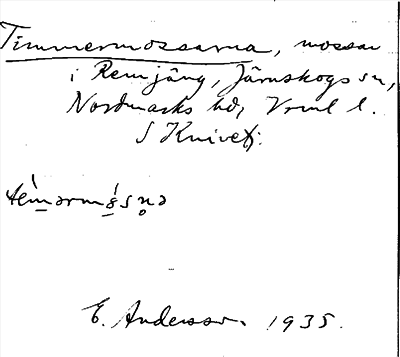 Timmermossarna, mossar
i Remjäng, Järnskogs sn,
Nordmarks hd, Vrml l.
S Knivet:
E. Andersson. 1935.